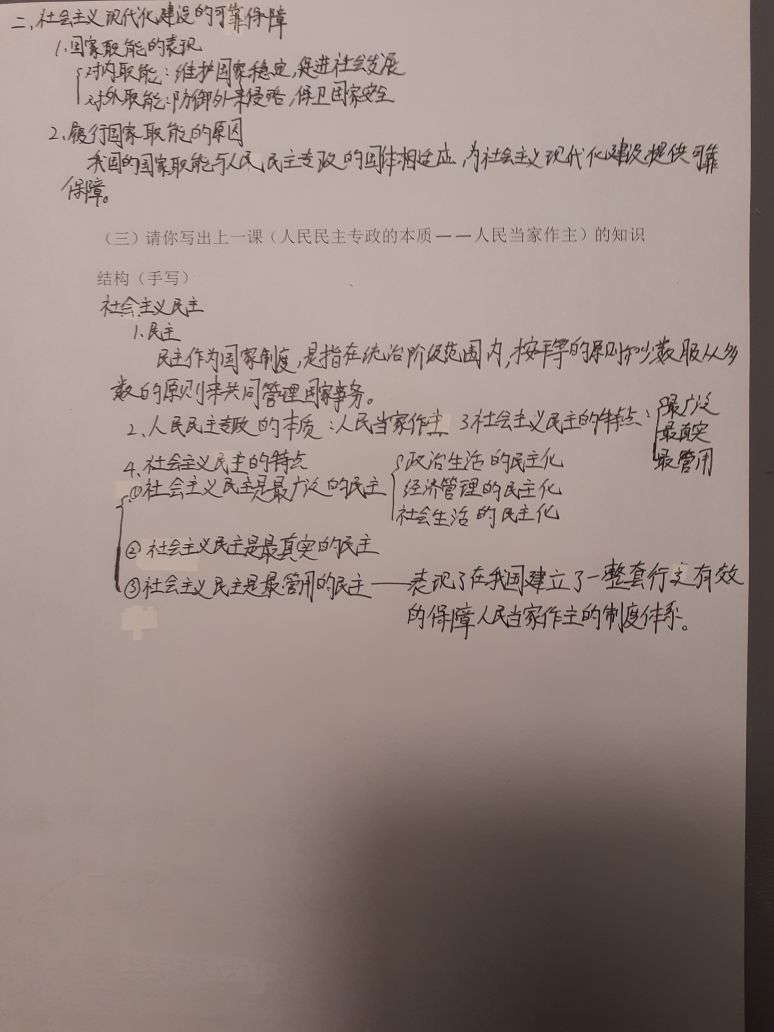 二、社会主义现代化建设的可靠保障
1.国家职能的表现
对内职能：维护国家稳定，促进社会发展
对外职能：防御外来侵略，保卫国家安全
2.履行国家职能的原因
我国的国家职能与人民民主专政的国体相适应，为社会主义现代化建设提供可靠
保障。
（三）请你写出上一课（人民民主专政的本质——人民当家作主）的知识
结构（手写）
社会主义民主
1.民主
民主作为国家制度，是指在统治阶级范围内，按平等的原则和少数服从多
数的原则来共同管理国家事务。
2、人民民主专政的本质：人民当家作主 3社会主义民主的特点：
最广泛
最真实
最管用
4、社会主义民主的特点
①社会主义民主是最广泛的民主
政治生活的民主化
经济管理的民主化
社会生活的民主化
②社会主义民主是最真实的民主
③社会主义民主是最管用的民主——表现了在我国建立了一整套行之有效
的保障人民当家作主的制度体系。